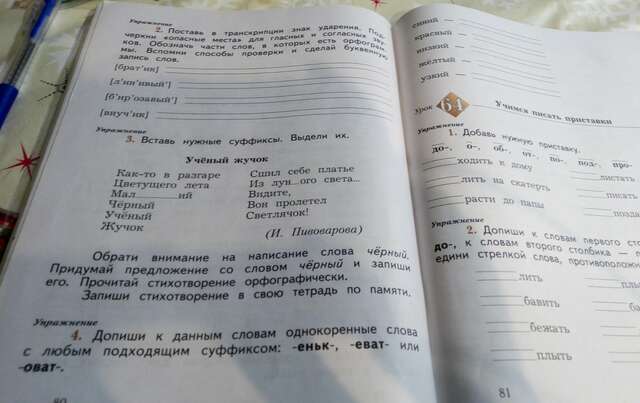 Упражнение
2. Поставь в транскрипции знак ударения. Под-
черкни «опасные места» для гласных и согласных зву-
ков. Обозначь части слов, в которых есть орфограм-
мы. Вспомни способы проверки и сделай буквенную
запись слов.
[брат'ик]
[л'ин'ивый']
[б'ир'озавый']
[внуч'ик]
Упражнение
3. Вставь нужные суффиксы. Выдели их.
Учёный жучок
Как-то в разгаре
Цветущего лета
Мал ий
Чёрный
Учёный
Жучок
Сшил себе платье
Из лун...ого света...
Видите,
Вон пролетел
Светлячок!
(И. Пивоварова)
Обрати внимание на написание слова чёрный.
Придумай предложение со словом чёрный и запиши
его. Прочитай стихотворение орфографически.
Запиши стихотворение в свою тетрадь по памяти.
Упражнение
4. Допиши к данным словам однокоренные слова
с любым подходящим суффиксом: -еньк-, -еват- или
-оват-.
80
синий –
красный
низкий –
жёлтый –
узкий
Урок 64 Учимся писать приставки
Упражнение
1. Добавь нужную приставку.
до-, о-, об-, от-, по-, под-, про-
ходить к дому
лить на скатерть
расти до папы
листать
писать
позда
Упражнение
2. Допиши к словам первого
до-, к словам второго столбика —
едини стрелкой слова, противополож
лить
бавить
бежать
плыть
пл
81